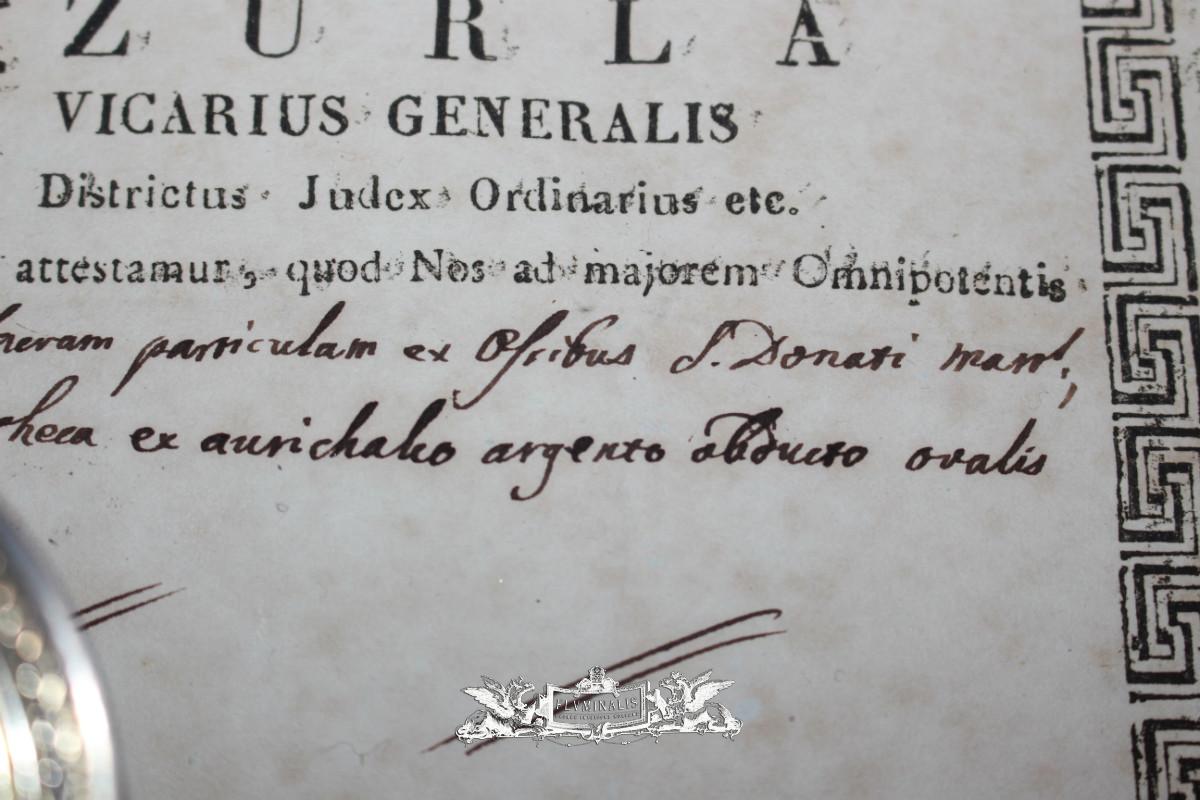 ZURLA
VICARIUS GENERALIS
Districtus Judex Ordinarius etc.
attestamur, quod Nos ad majorem Omnipotentis
particulam ex Ossibus S. Donati
ex aurichalco argento obducto ovalis
FLVMINALIS